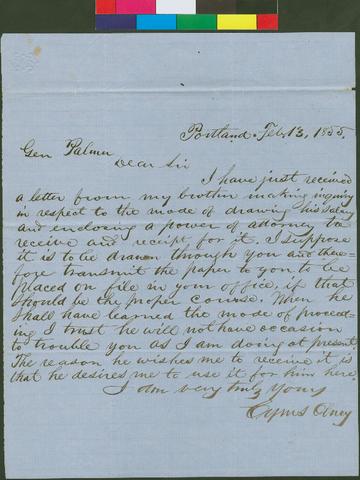 Portland. Feb. 13, 1855.
Gen Palmer
Dear Sir
I have just received
a letter from my brother making inquiry
in respect to the mode of drawing his salary
and enclosing a power of attorney to
receive and receipt for it. I suppose
it is to be drawn through you and there-
fore transmit the paper to you to be
placed on file in your office, if that
should be the proper course. When he
shall have learned the mode of proceed-
ing I trust he will not have occasion
to trouble you as I am doing at present.
The reason he wishes me to receive it is
that he desires me to use it for him here
I am very truly yours
Cyrus Olney